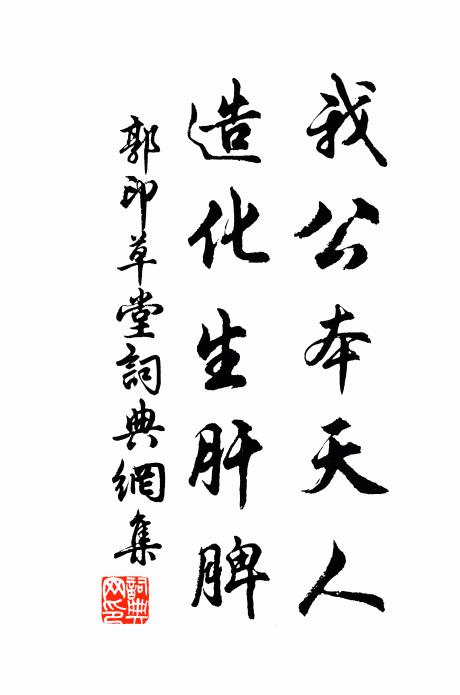 我公本天人
造化生肝脾
郭印草堂詞典網集
詞典網印